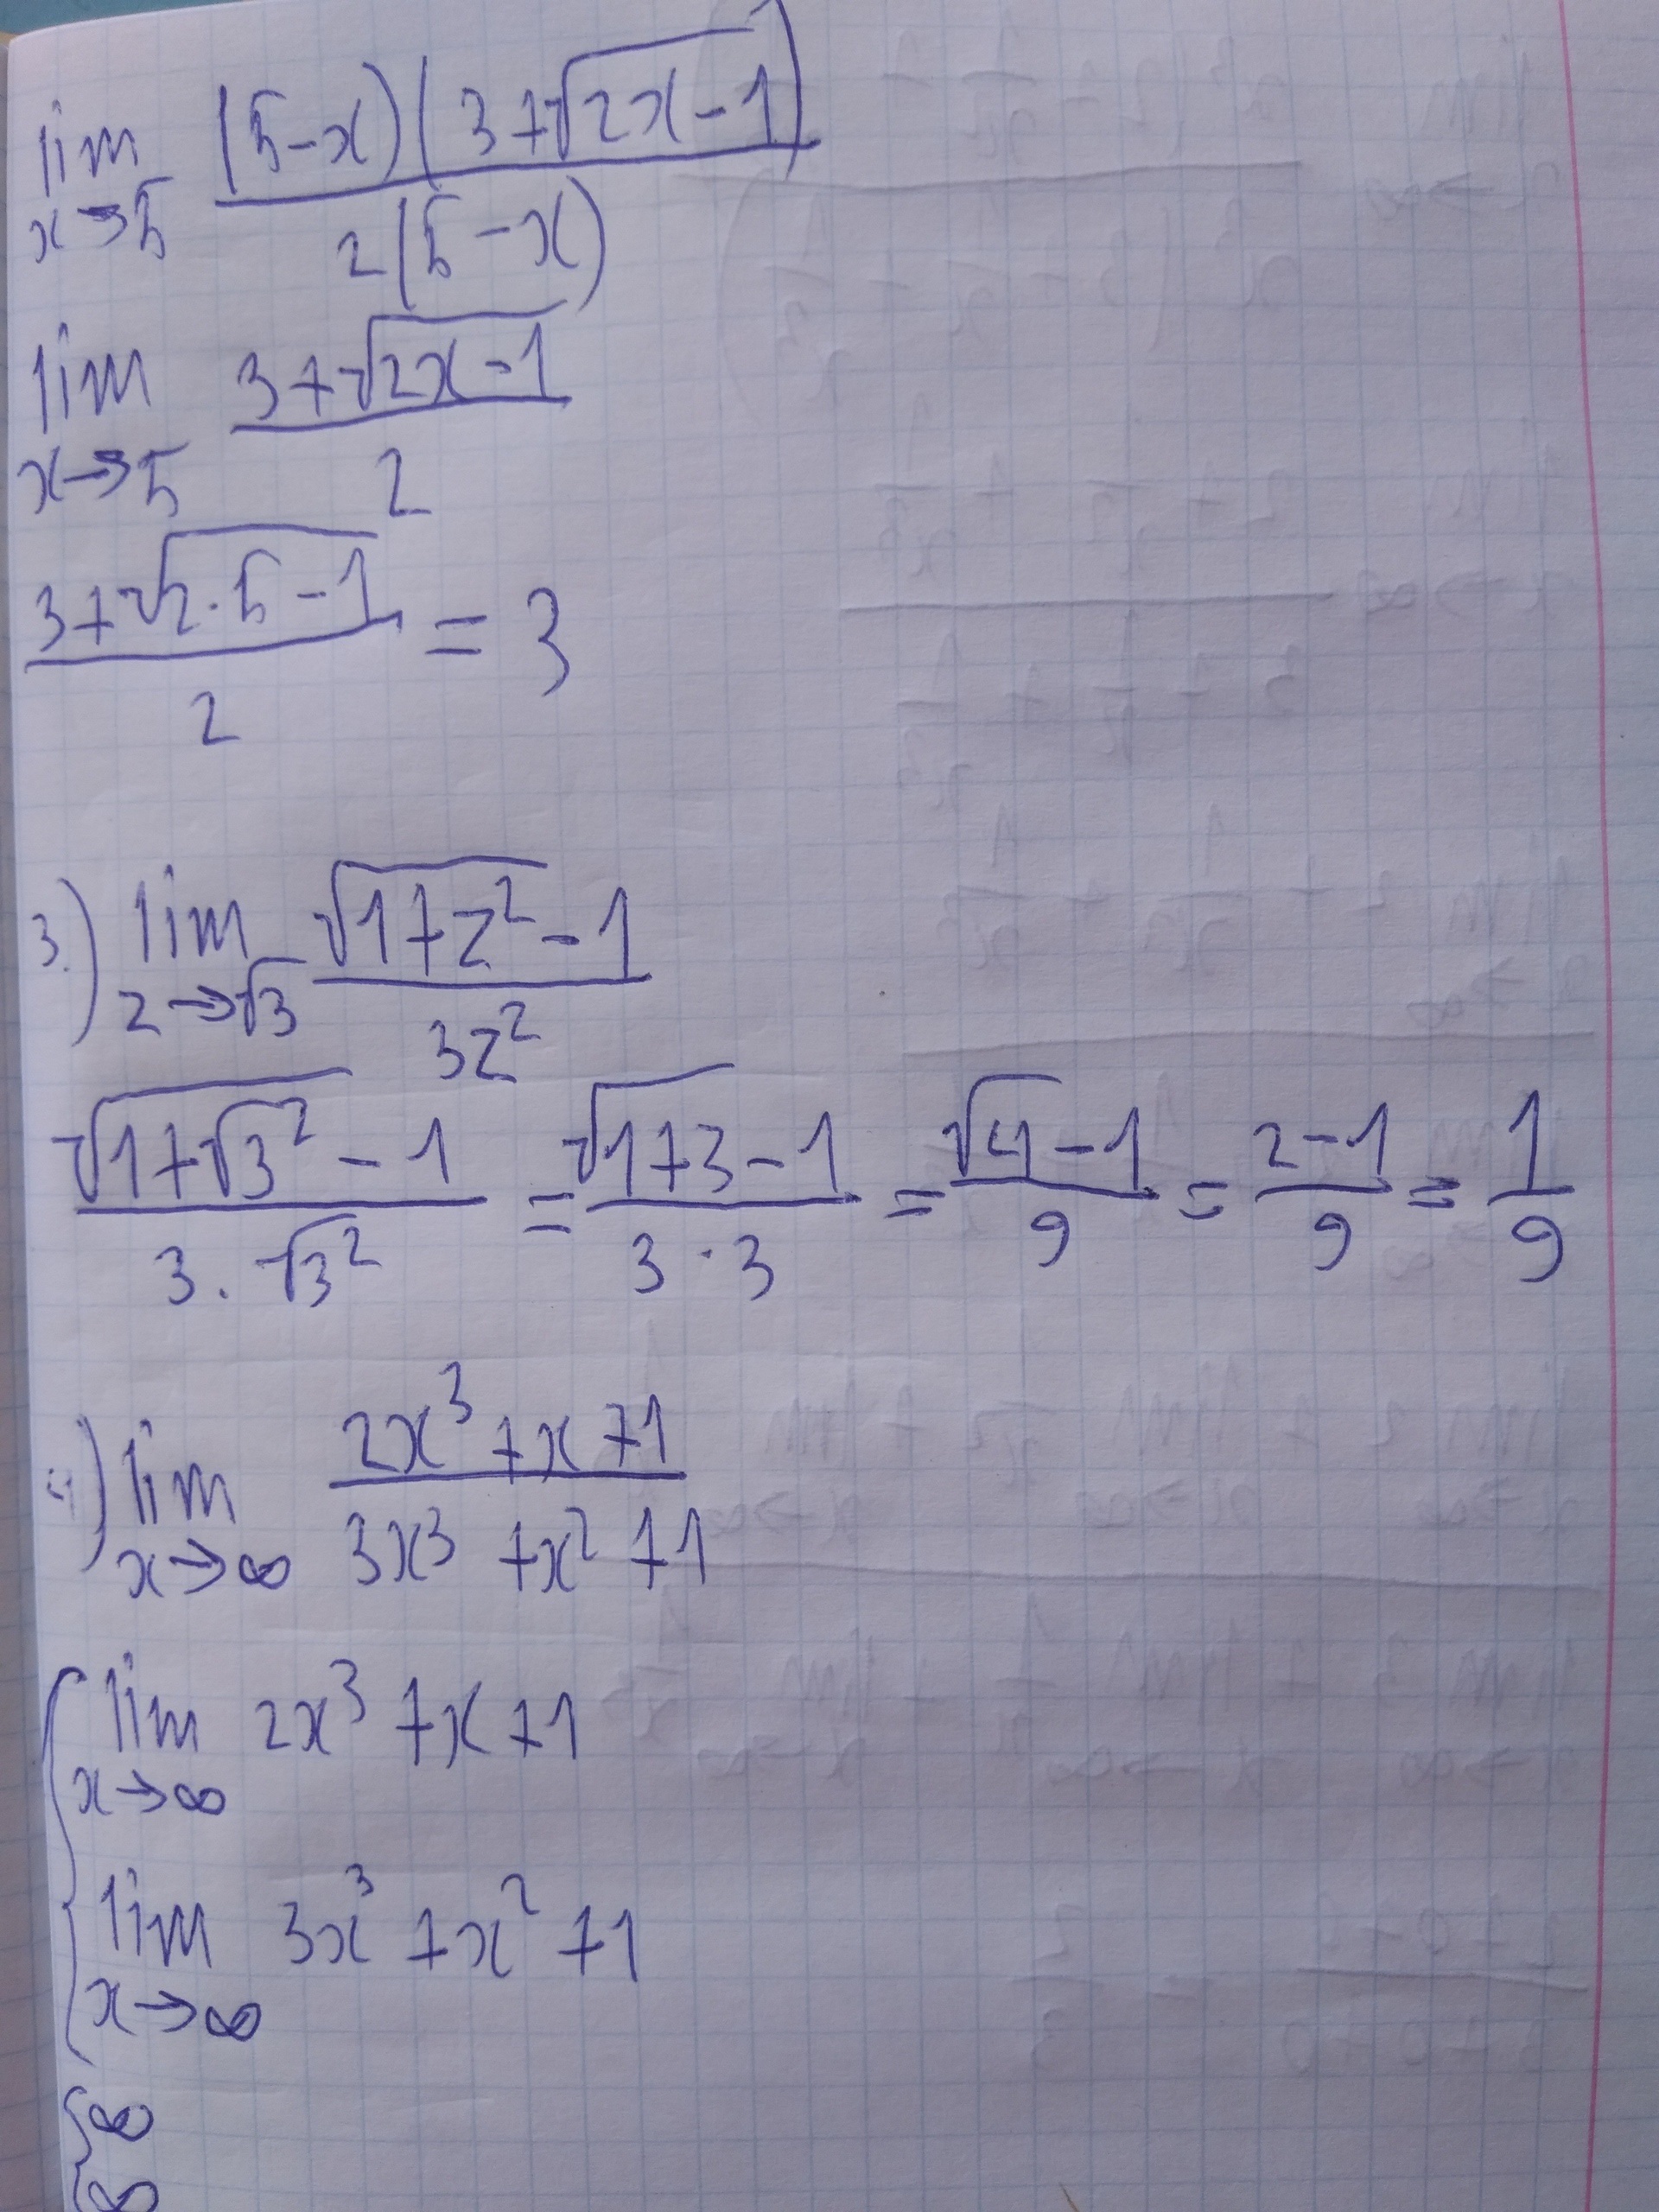 lim x→5 (5-x)(3+√(2x-1)) / 2(5-x)
lim x→5 (3+√(2x-1)) / 2
(3+√(2·5-1)) / 2 = 3
3.) lim z→√3 (√(1+z²)-1) / 3z²
(√(1+√3²)-1) / (3·√3²) = (√(1+3)-1) / (3·3) = (√4-1) / 9 = (2-1) / 9 = 1/9
4) lim x→∞ (2x³+x+1) / (3x³+x²+1)
{ lim x→∞ 2x³+x+1
lim x→∞ 3x³+x²+1
{ ∞
∞